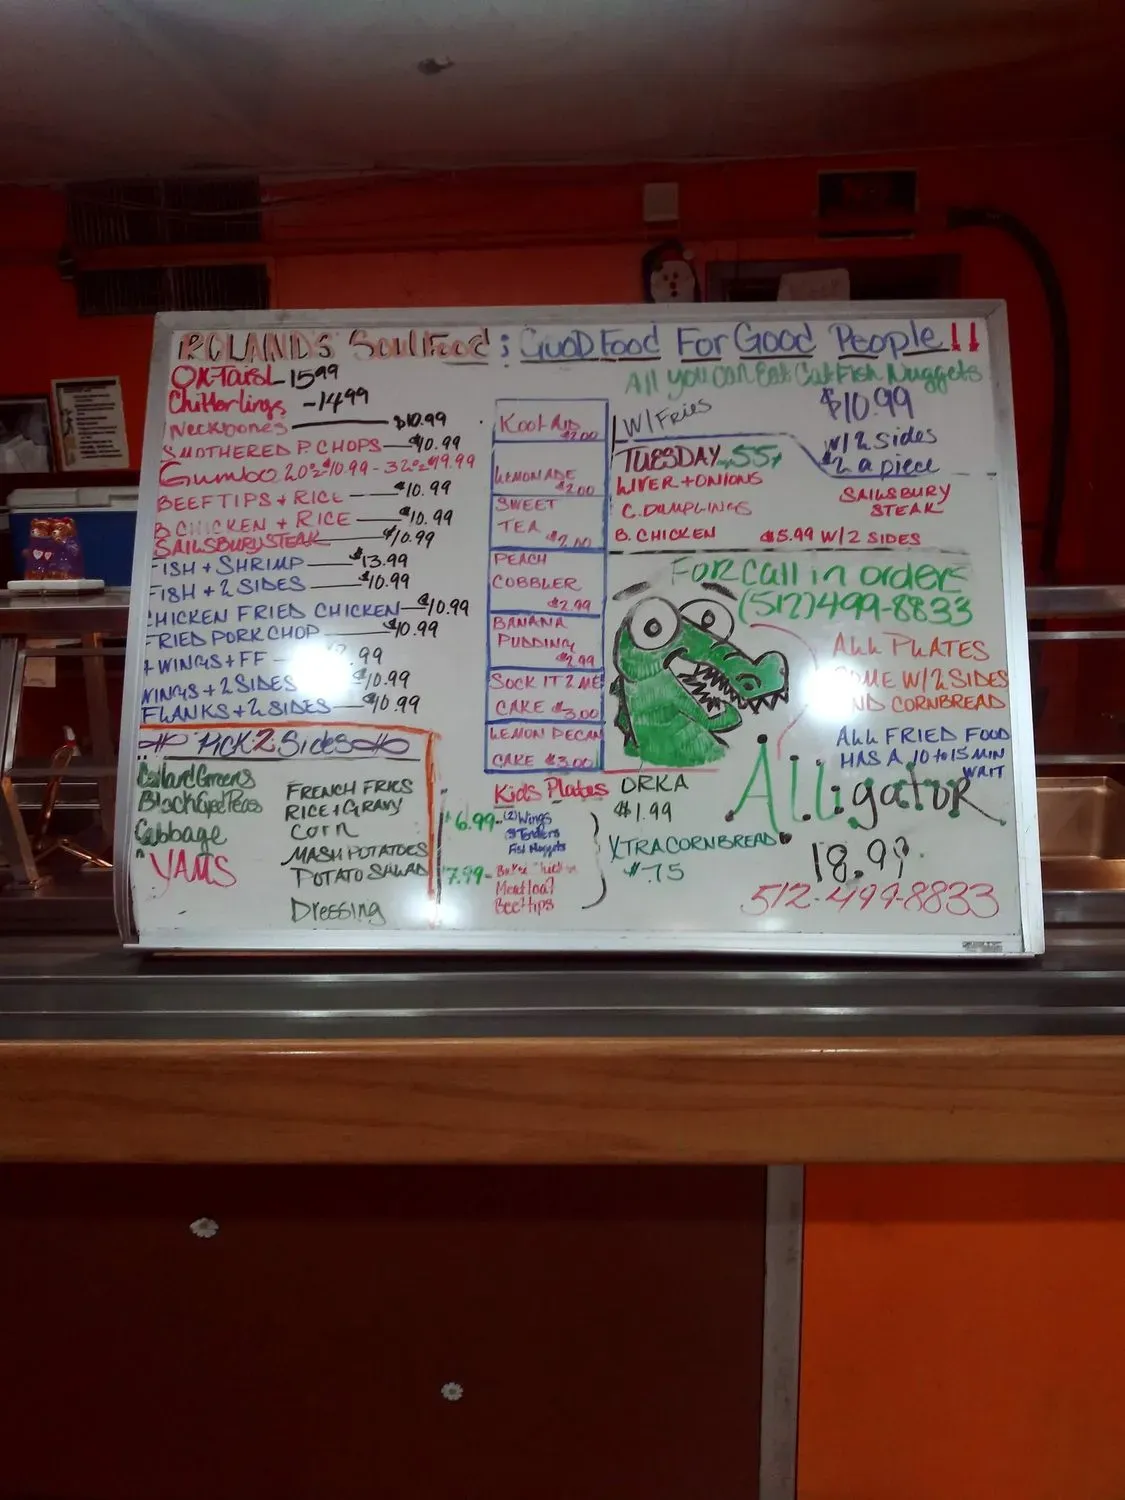 ROLAND'S Soul Food : Good Food For Good People !!
Ox-Tails - 15.99
Chitterlings - 14.99
Neckbones $10.99
SMOTHERED P. CHOPS $10.99
Gumbo 20oz $10.99 - 32oz $19.99
BEEF TIPS + RICE $10.99
B. CHICKEN + RICE $10.99
SAILSBURY STEAK $10.99
FISH + SHRIMP $13.99
FISH + 2 SIDES $10.99
CHICKEN FRIED CHICKEN $10.99
FRIED PORK CHOP $10.99
4 WINGS + FF .99
WINGS + 2 SIDES $10.99
FLANKS + 2 SIDES $10.99
PICK 2 Sides
Collard Greens
Black Eyed Peas
Cabbage
YAMS
FRENCH FRIES
RICE + GRAVY
CORN
MASH POTATOES
POTATO SALAD
Dressing
Kool Aid
$2.00
LEMONADE
$2.00
SWEET
TEA
$2.00
PEACH
COBBLER
$2.99
BANANA
PUDDING
$2.99
SOCK IT 2 ME
CAKE $3.00
LEMON PECAN
CAKE $3.00
Kids Plates
$6.99 - (2) Wings
Tenders
Fish Nuggets
7.99 - Baked Chicken
Meatloaf
Beef tips
All You Can Eat CatFish Nuggets
$10.99
W/ Fries
W/ 2 Sides
$2 a piece
TUESDAY 55+
LIVER + ONIONS
C. DUMPLINGS
B. CHICKEN
SAILSBURY
STEAK
$5.99 W/ 2 SIDES
FOR Call in orders
(512) 499-8833
ALL PLATES
COME W/ 2 SIDES
AND CORNBREAD
ALL FRIED FOOD
HAS A 10 to 15 MIN
WAIT
Alligator
18.99
512-499-8833
ORKA
$1.99
XTRA CORNBREAD
$.75